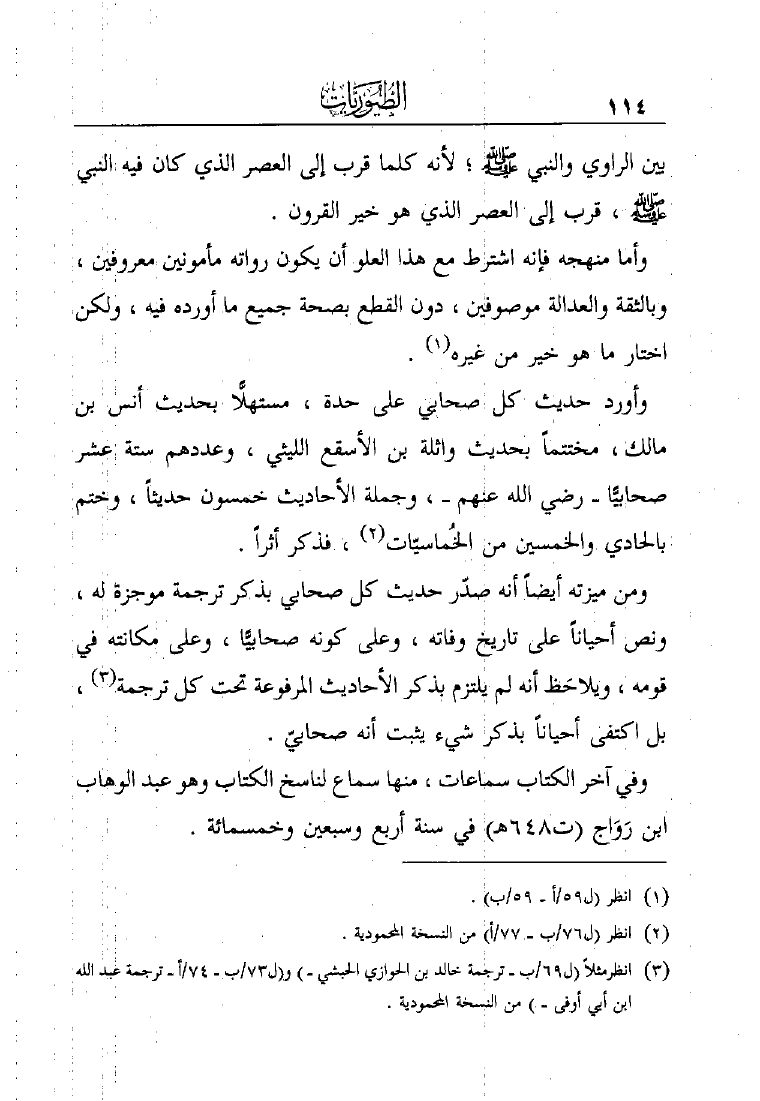 ١١٤
الطيوريات
بين الراوي والنبي ﷺ ؛ لأنه كلما قرب إلى العصر الذي كان فيه النبي
ﷺ ، قرب إلى العصر الذي هو خير القرون .
وأما منهجه فإنه اشترط مع هذا العلو أن يكون رواته مأمونين معروفين ،
وبالثقة والعدالة موصوفين ، دون القطع بصحة جميع ما أورده فيه ، ولكن
اختار ما هو خير من غيره(١) .
وأورد حديث كل صحابي على حدة ، مستهلًّا بحديث أنس بن
مالك ، مختتماً بحديث واثلة بن الأسقع الليثي ، وعددهم ستة عشر
صحابيًّا ـ رضي الله عنهم ـ ، وجملة الأحاديث خمسون حديثاً ، وختم
بالحادي والخمسين من الخُماسيّات(٢) ، فذكر أثراً .
ومن ميزته أيضاً أنه صدّر حديث كل صحابي بذكر ترجمة موجزة له ،
ونص أحياناً على تاريخ وفاته ، وعلى كونه صحابيًّا ، وعلى مكانته في
قومه ، ويلاحَظ أنه لم يلتزم بذكر الأحاديث المرفوعة تحت كل ترجمة(٣) ،
بل اكتفى أحياناً بذكر شيء يثبت أنه صحابيّ .
وفي آخر الكتاب سماعات ، منها سماع لناسخ الكتاب وهو عبد الوهاب
ابن رَوَاج (ت٦٤٨هـ) في سنة أربع وسبعين وخمسمائة .
(١) انظر (ل٥٩/أ ـ ٥٩/ب) .
(٢) انظر (ل٧٦/ب ـ ٧٧/أ) من النسخة المحمودية .
(٣) انظرمثلاً (ل٦٩/ب ـ ترجمة خالد بن الحوازي الحبشي ـ) و(ل٧٣/ب ـ ٧٤/أ ـ ترجمة عبد الله
ابن أبي أوفى ـ ) من النسخة المحمودية .